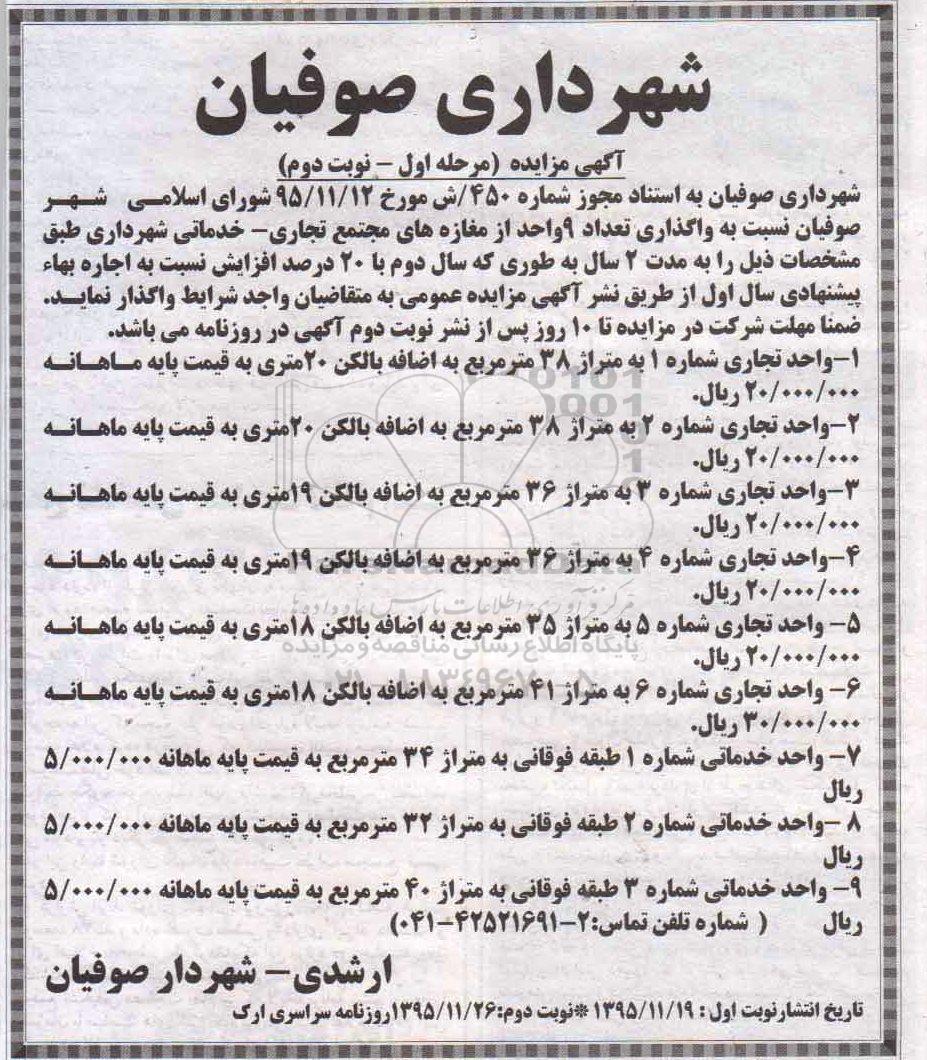 شهرداری صوفیان
آگهی مزایده (مرحله اول - نوبت دوم)
شهرداری صوفیان به استناد مجوز شماره ۴۵۰/ش مورخ ۹۵/۱۱/۱۲ شورای اسلامی شهر
صوفیان نسبت به واگذاری تعداد ۹واحد از مغازه های مجتمع تجاری- خدماتی شهرداری طبق
مشخصات ذیل را به مدت ۲ سال به طوری که سال دوم با ۲۰ درصد افزایش نسبت به اجاره بهاء
پیشنهادی سال اول از طریق نشر آگهی مزایده عمومی به متقاضیان واجد شرایط واگذار نماید.
ضمنا مهلت شرکت در مزایده تا ۱۰ روز پس از نشر نوبت دوم آگهی در روزنامه می باشد.
۱-واحد تجاری شماره ۱ به متراژ ۳۸ مترمربع به اضافه بالکن ۲۰متری به قیمت پایه ماهانه
۲۰/۰۰۰/۰۰۰ ریال.
۲-واحد تجاری شماره ۲ به متراژ ۳۸ مترمربع به اضافه بالکن ۲۰متری به قیمت پایه ماهانه
۲۰/۰۰۰/۰۰۰ ریال.
۳-واحد تجاری شماره ۳ به متراژ ۳۶ مترمربع به اضافه بالکن ۱۹متری به قیمت پایه ماهانه
۲۰/۰۰۰/۰۰۰ ریال.
۴-واحد تجاری شماره ۴ به متراژ ۳۶ مترمربع به اضافه بالکن ۱۹متری به قیمت پایه ماهانه
۲۰/۰۰۰/۰۰۰ ریال.
۵- واحد تجاری شماره ۵ به متراژ ۳۵ مترمربع به اضافه بالکن ۱۸متری به قیمت پایه ماهانه
۲۰/۰۰۰/۰۰۰ ریال.
۶- واحد تجاری شماره ۶ به متراژ ۴۱ مترمربع به اضافه بالکن ۱۸متری به قیمت پایه ماهانه
۳۰/۰۰۰/۰۰۰ ریال.
۷- واحد خدماتی شماره ۱ طبقه فوقانی به متراژ ۳۴ مترمربع به قیمت پایه ماهانه ۵/۰۰۰/۰۰۰
ریال
۸ -واحد خدماتی شماره ۲ طبقه فوقانی به متراژ ۳۲ مترمربع به قیمت پایه ماهانه ۵/۰۰۰/۰۰۰
ریال
۹- واحد خدماتی شماره ۳ طبقه فوقانی به متراژ ۴۰ مترمربع به قیمت پایه ماهانه ۵/۰۰۰/۰۰۰
ریال ( شماره تلفن تماس:۲-۴۲۵۲۱۶۹۱-۰۴۱)
ارشدی- شهردار صوفیان
تاریخ انتشارنوبت اول : ۱۳۹۵/۱۱/۱۹ *نوبت دوم:۱۳۹۵/۱۱/۲۶روزنامه سراسری ارک
پایگاه اطلاع رسانی مناقصه و مزایده